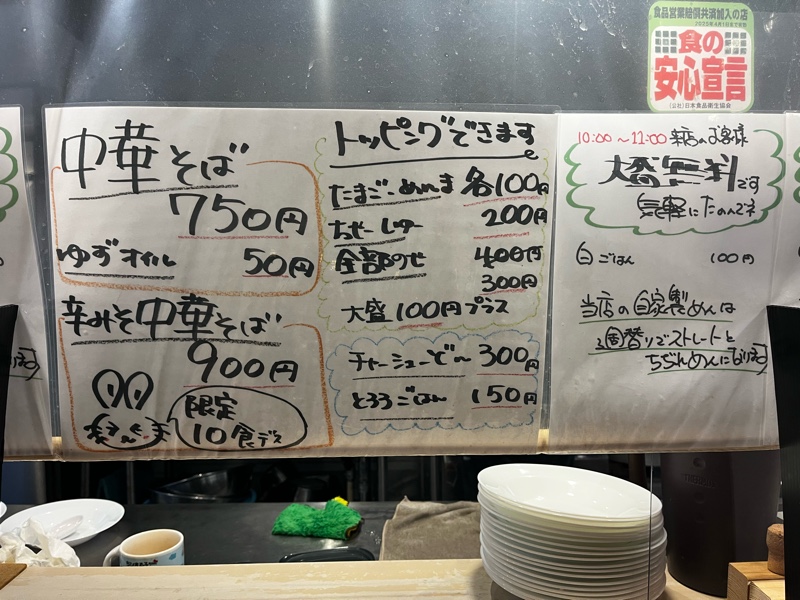 食品営業賠償共済加入の店
食の
安心宣言
(公社)日本食品衛生協会
中華そば
750円
ゆずオイル 50円
辛みそ中華そば
900円
限定
10食デス
トッピングできます
たまご・めんま 各100円
200円
全部のせ 400円
300円
大盛100円プラス
チャーシューどん 300円
とろろごはん 150円
10:00～11:00 来店のお客様
大盛無料です
気軽にたのんでネ
白ごはん 100円
当店の自家製めんは
2週替りでストレートと
ちぢれめんになります